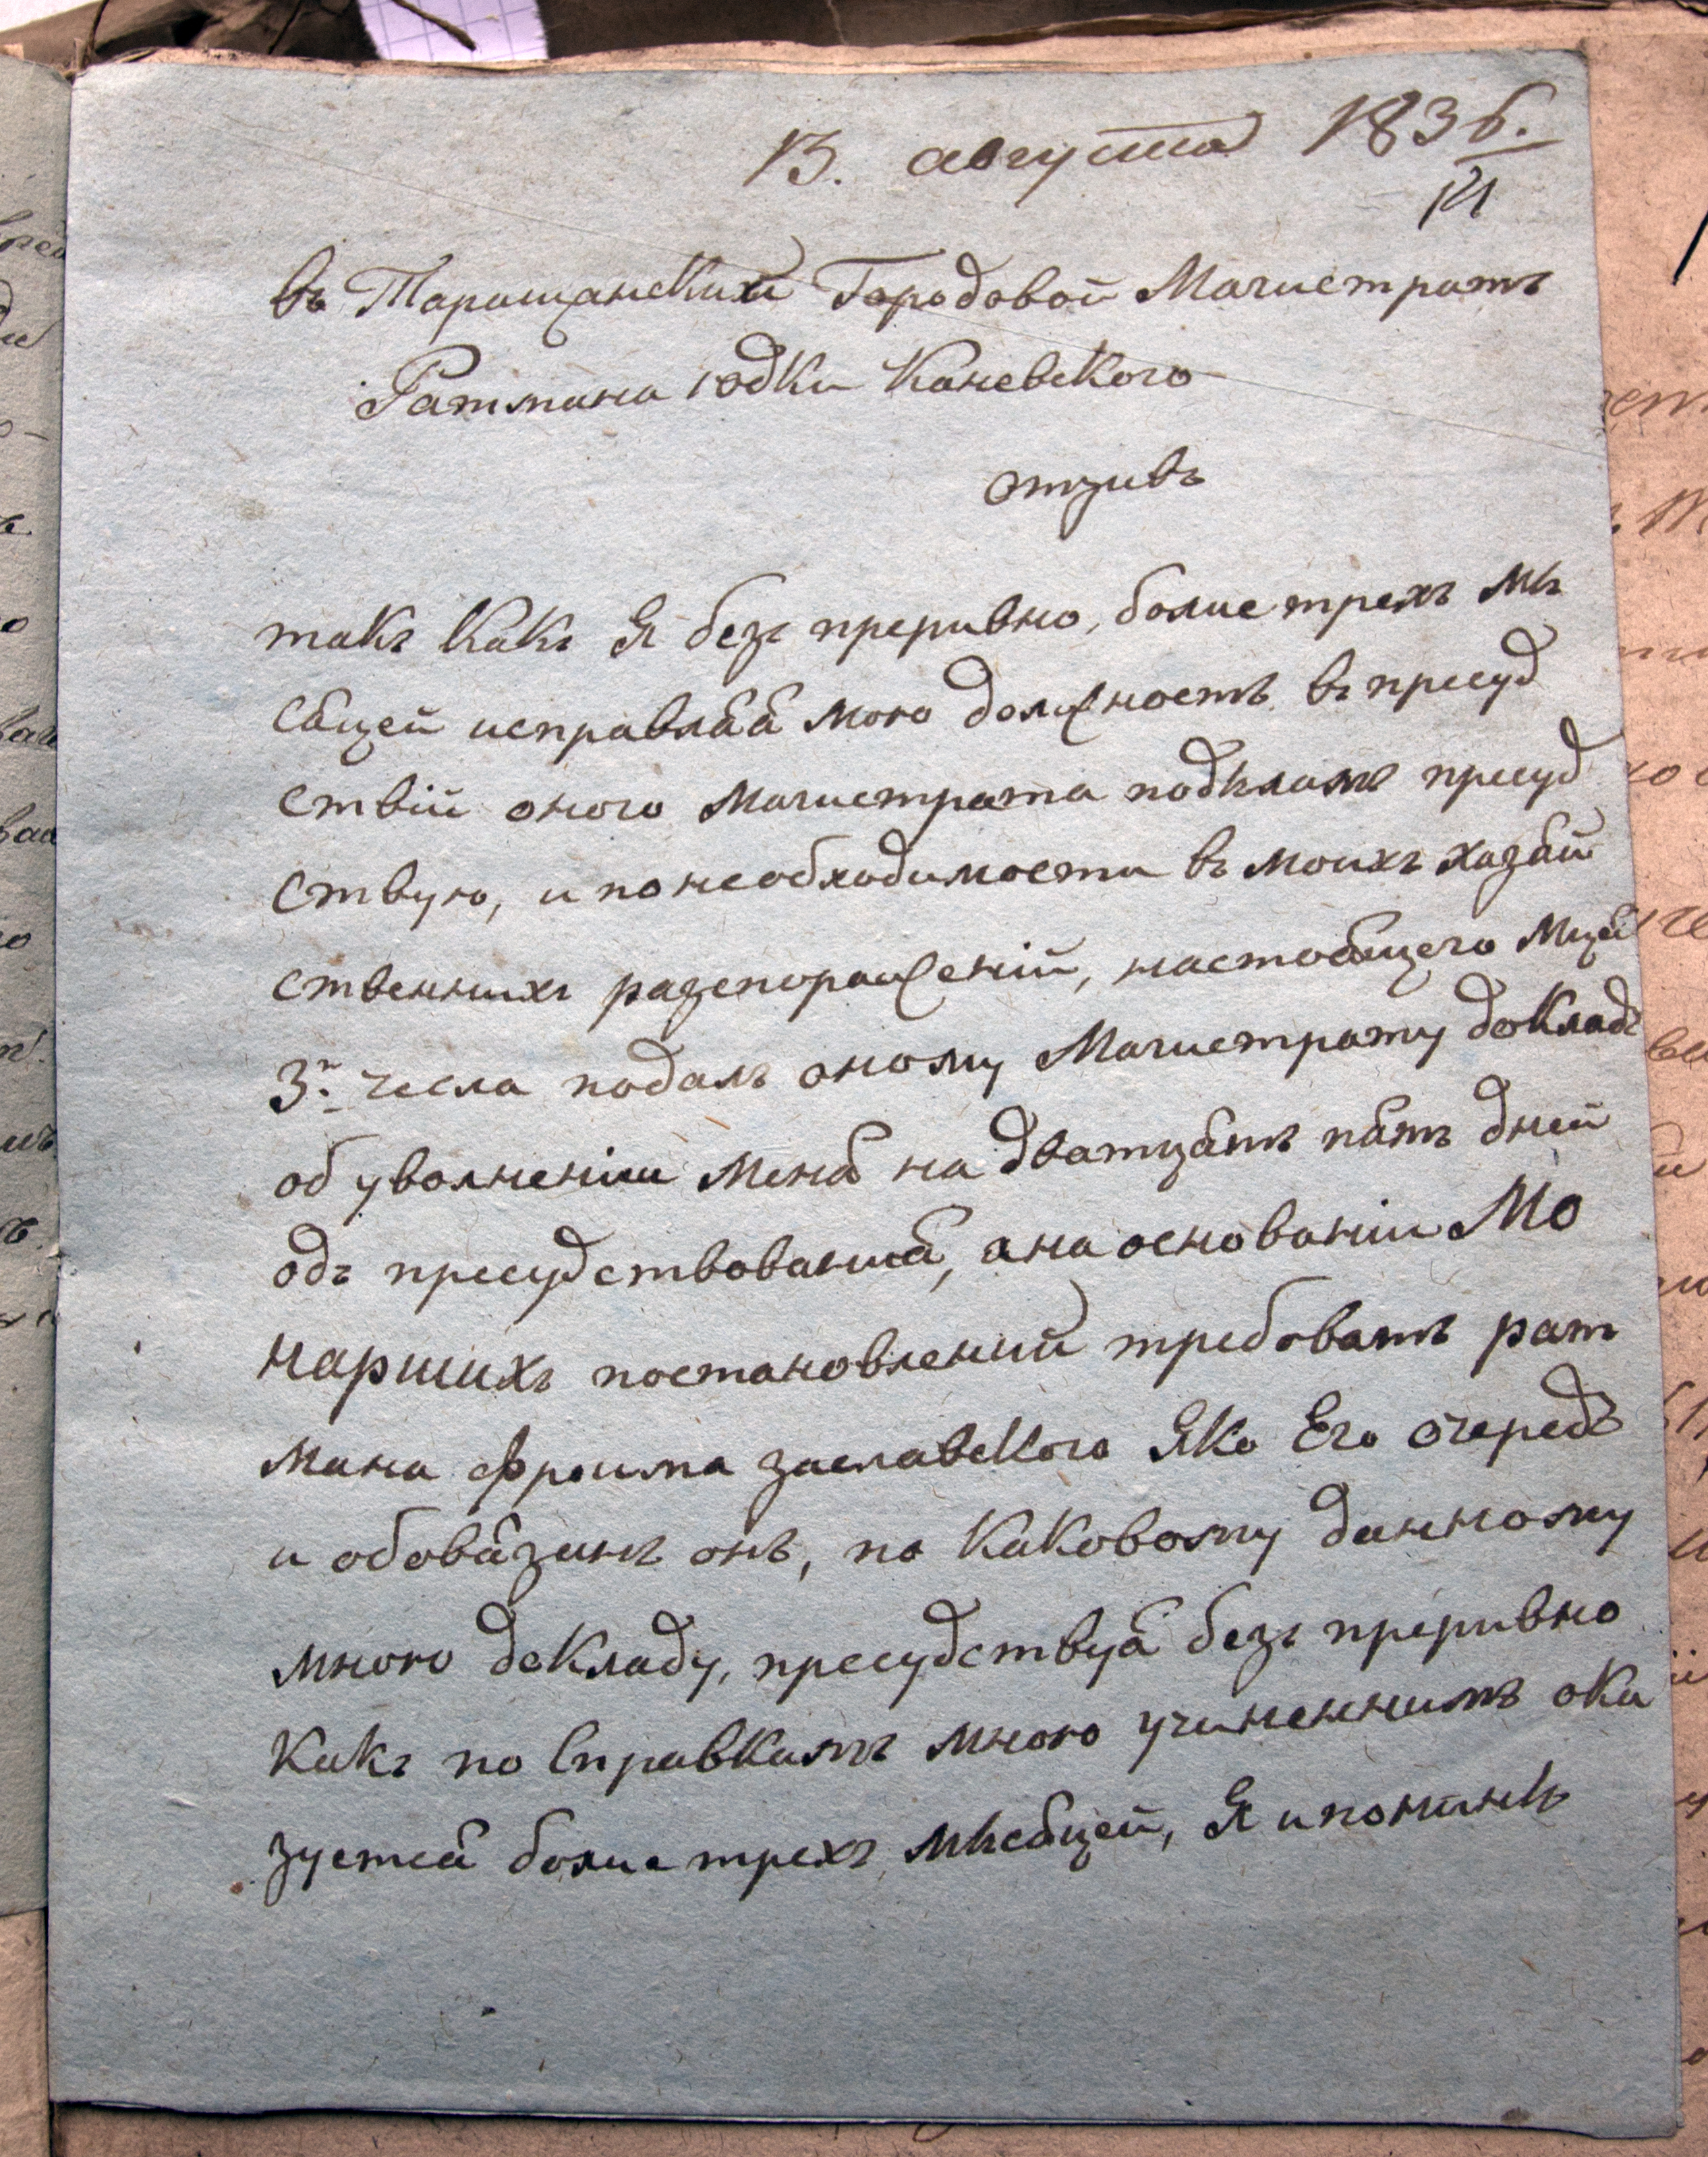 13. августа 1836.
въ Таращанский Городовой Магистратъ
Ратмана Юдки Каневского
отзивъ
такъ какъ Я безъ преривно, болие трехъ мѣ
сяцей исправляя мою должность въ присуд
ствіи оного Магистрата присуд
ствую, и по необходимости въ моихъ хазяй
ственнихъ разспораженій, настоящего Мца
3го числа подалъ оному Магистрату докладъ
об уволненіи Меня на дватцять пять дней
одъ присудствования, а на основаніи Мо
наршихъ постановлений требовать рат
мана Фроима Заславского Яко Его очередъ
и обовязанъ онъ, по каковому данному
мною докладу, присудствуя безъ преривно
какъ по Справкамъ мною учиненнимъ ока
зуется болие трехъ мѣсяцей, Я и понинѣ